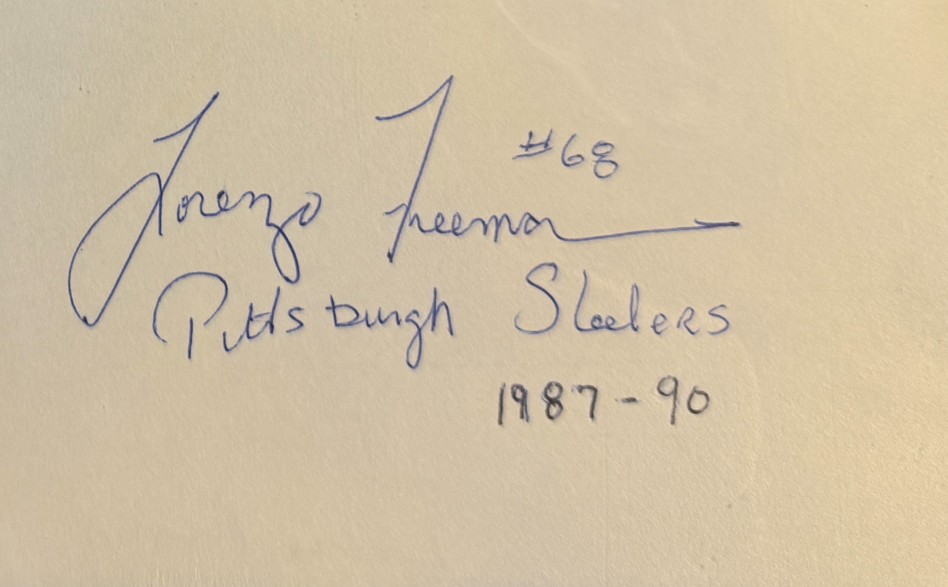 #68
Lorenzo Freeman
Pittsburgh Steelers
1987-90